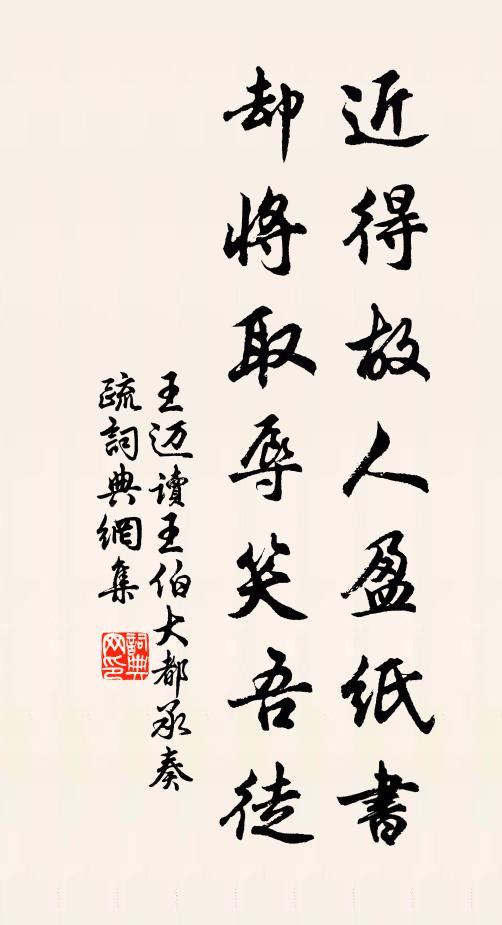 近得故人盈紙書
却將取辱笑吾徒
王迈讀王伯大都承奏
疏詞典網集
詞典网印